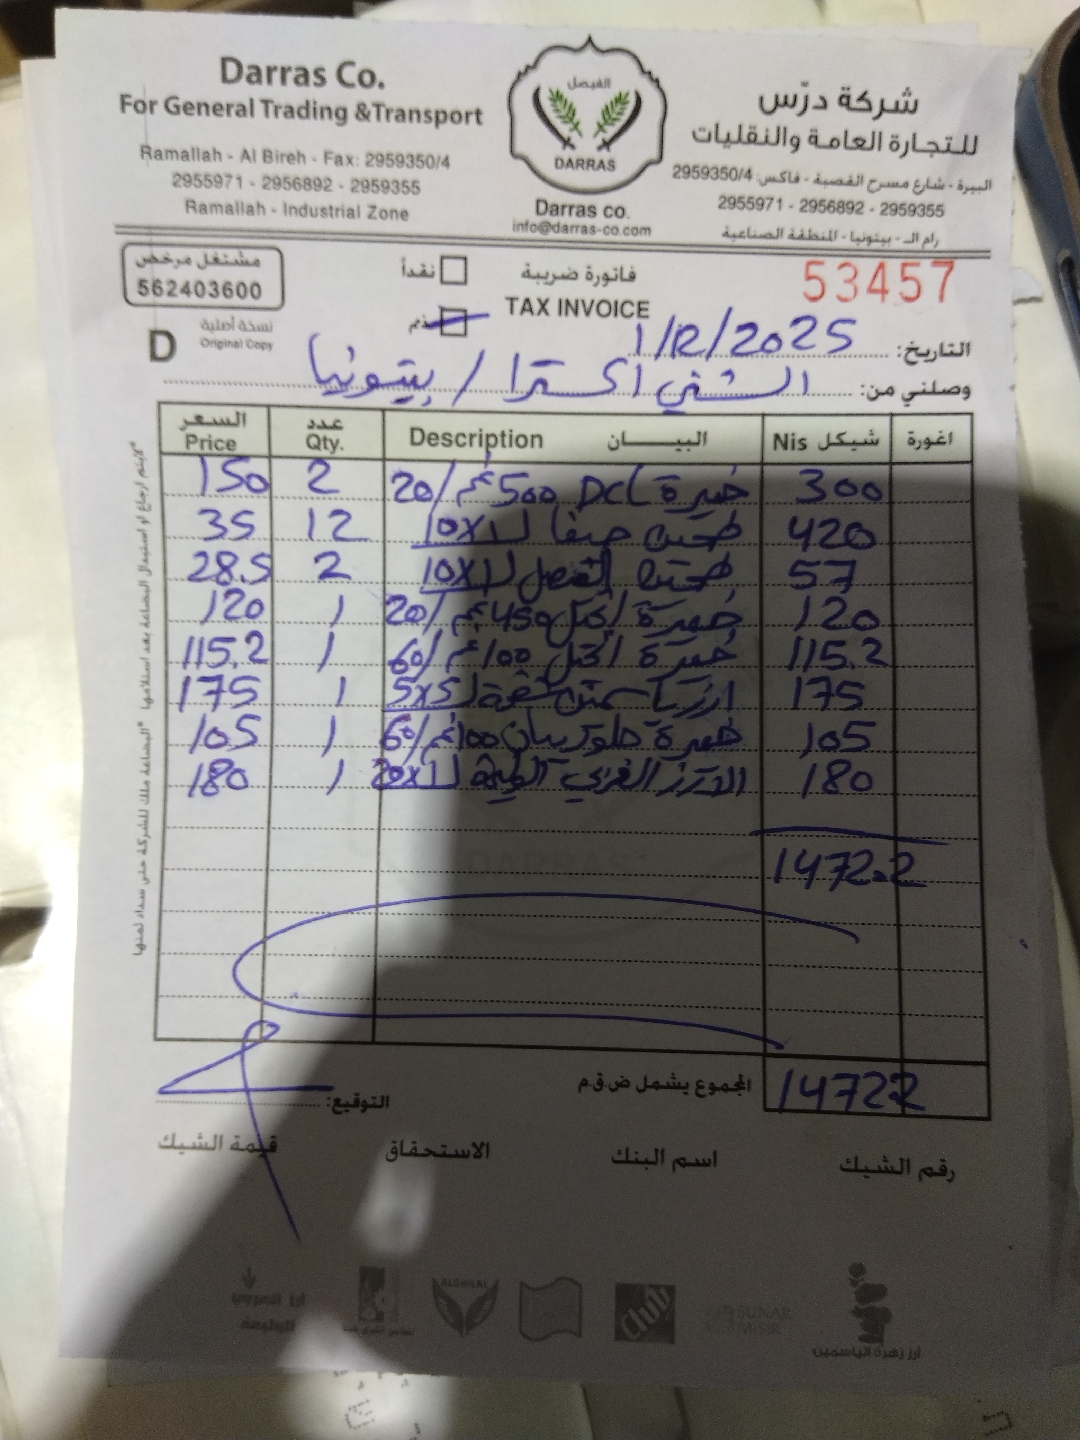 Darras Co.
For General Trading &Transport
Ramallah - Al Bireh - Fax: 2959350/4
2955971 - 2956892 - 2959355
Ramallah - Industrial Zone
الفيصل
DARRAS
Darras co.
info@darras-co.com
شركة درّس
للتجارة العامة والنقليات
البيرة - شارع مسرح القصبة - فاكس: 2959350/4
2955971 - 2956892 - 2959355
رام الـ - بيتونيا - المنطقة الصناعية
مشتغل مرخص
562403600
نقداً
فاتورة ضريبة
TAX INVOICE
53457
D
نسخة أصلية
Original Copy
ذمم
التاريخ: 1/12/2025
وصلني من: الشني اكسترا / بيتونيا
السعر عدد البيــــان شيكل اغورة
Price Qty. Description Nis
150 2 خميرة DCL 500 غم/20 300
35 12 طحين حيفا 10X1 420
28.5 2 طحين 10X1 57
120 1 خميرة 450 غم/20 120
115.2 1 خميرة 100 غم/60 115.2
175 1 5X5 175
105 1 خميرة 100 غم/60 105
180 1 20X1 180
1472.2
المجموع يشمل ض.ق.م 14722
التوقيع:
رقم الشيك اسم البنك الاستحقاق قيمة الشيك
لايتم ارجاع او استبدال البضاعة بعد استلامها
البضاعة ملك للشركة حتى سداد ثمنها
ALGHILAL
SUNAR MISIR
أرز زهرة الياسمين